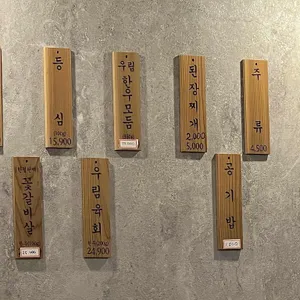 등심
15,900
우림
한우모듬
된장찌개
2,000
5,000
주류
4,500
꽃갈비살
우림육회
24,900
공기밥